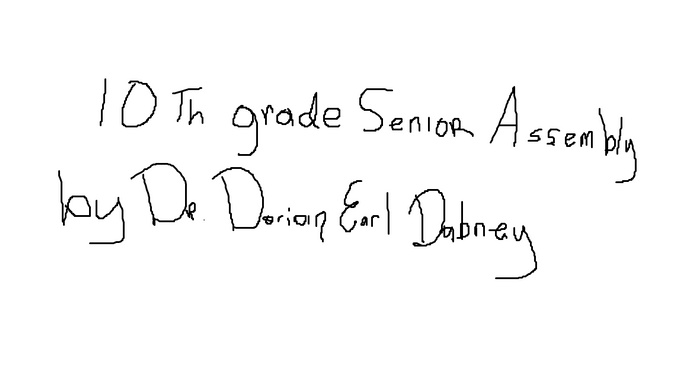 10Th grade Senior Assembly
by Dr. Dorian Earl Dabney